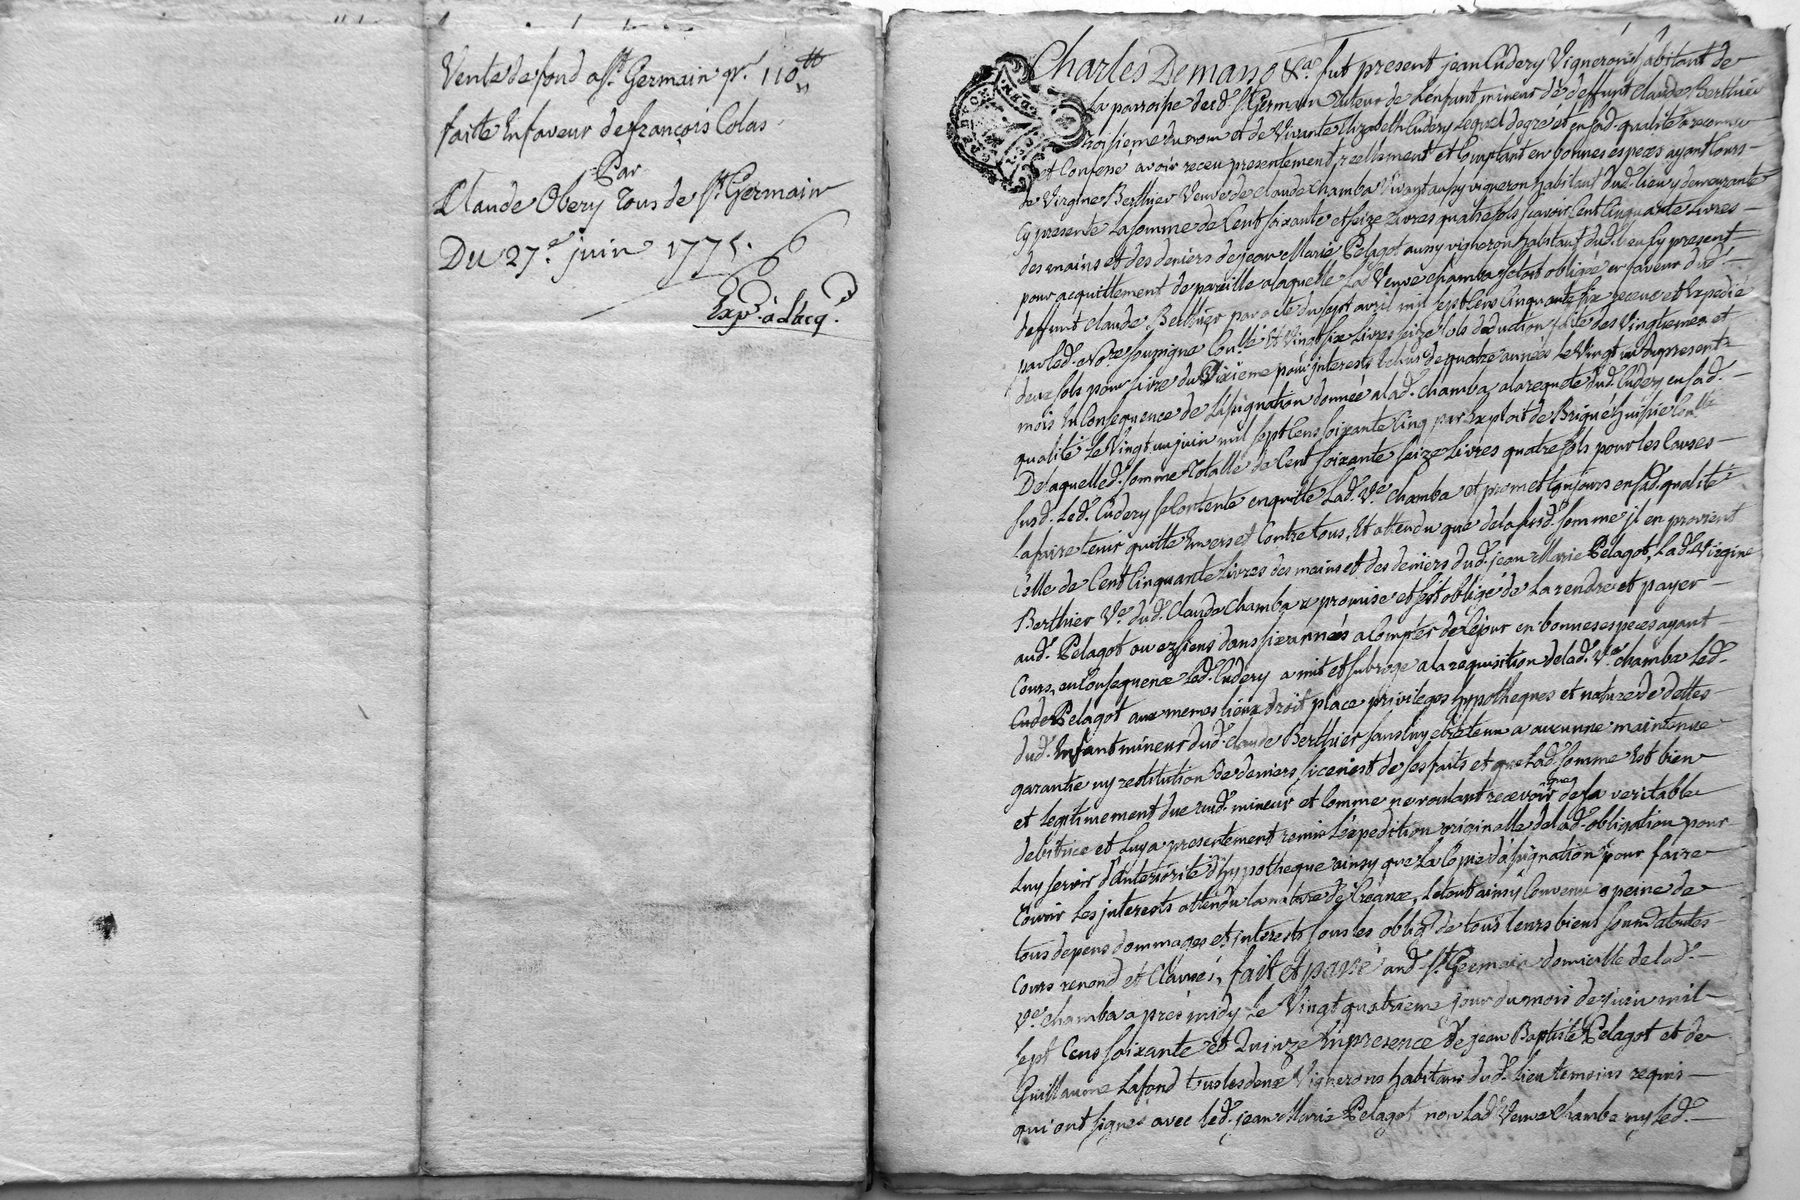 Vente de fond a St. Germain pr. 110tt
faitte En faveur de françois Colas
Par
Claude Obery Tous de St. Germain
Du 27e. juin 1775.
Exp. a Lacq.
Charles Demano &a. fut present jean Cudery Vigneron habitant de
la parroisse dud. St. Germain tuteur de L'enfant mineur dé deffunt Claude Berthier
troisieme du nom et de Vivante Elizabeth Cudery Lequel de gré et en sad. qualité a reconnu
et Confessé avoir receu presentement, reellement et Comptant en bonnes especes ayant Cours
de Virgine Berthier Veuve de Claude Chamba Vivant aussy vigneron habitant dud. lieu y demeurante
Cy presente La somme de Cent soixante et seize Livres quatre sols sçavoir Cent Cinquante Livres
des mains et des deniers de jean Marie Pelagot aussy vigneron habitant dud. lieu Cy present
pour acquittement de pareille a laquelle La d. Veuve Chamba s'etoit obligée en faveur dud.
deffunt Claude Berthier par acte du sept avril mil sept Cens Cinquante six receu et Expedié
par led. Nore. soussigné Conllé Et Vingt six Livres seize sols deduction faite des Vingtiemes et
deux sols pour Livre du Dixieme pour interests Echus de quatre années Le Vingt un du present
mois En Consequence de L'assignation donnée a lad. Chamba a la requete dud. Cudery en sad.
qualité Le Vingt un juin mil sept Cens soixante Cinq par Exploit de Brigué huissier Conllé
De laquelle d. somme Totalle de Cent soixante seize Livres quatre sols pour les Causes
susd. Led. Cudery se Contente en quitte Lad. Ve. Chamba et promet toujours en sad. qualité
la faire tenir quitte Envers et Contre tous, Et attendu que de la susd. somme jl en provient
Celle de Cent Cinquante Livres des mains et des deniers dud. jean Marie Pelagot, Lad. Virgine
Berthier Ve. dud. Claude Chamba a promise et s'est obligé de La rendre et payer
aud. Pelagot ou ez siens dans six années a Compter de Cejour en bonnes especes ayant
Cours, en Consequence Led. Cudery a mit et subrogé a la requisition de lad. Ve. Chamba Led.
Cuder Pelagot aux memes lieux droit place privileges hypotheques et nature de dettes
dud. Enfant mineur dud. Claude Berthier sans luy etre tenu a aucunne maintenue
garantie ny restitution de deniers, si ce n'est de ses faits et que Lad. somme Est bien
et legitimement due aud. mineur et Comme ne voulant recevoir que de sa veritable
debitrice et Luy a presentement remis L'expedition originelle de lad. obligation pour
Luy servir d'anteriorité d'hypotheque ainsy que La Copie d'assignation pour faire
Courir Les jnterests attendu la nature de Créance, Le tout ainsy Convenu a peine de
tous depens dommages et jnterests sous les obligõn de tous leurs biens soumõn a toutes
Cours renond et Clauses, fait et passé aud. St. Germain domicille de lad.
Ve. Chamba aprés midy Le Vingt quatrieme jour du mois de juin mil
sept Cens soixante et Quinze En presence de jean Baptiste Pelagot et de
Guillaume Lafond tous les deux Vignerons habitans dud. lieu temoins requis
qui ont signé avec led. jean Marie Pelagot non lad. Veuve Chamba ny led.